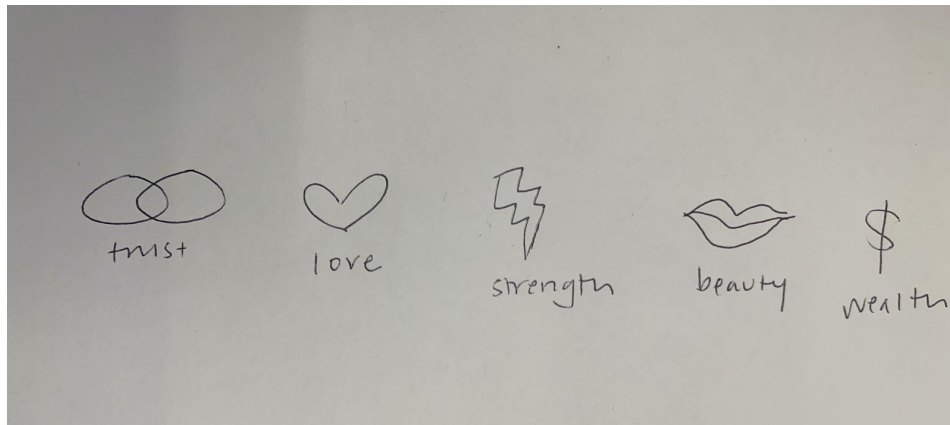 trust
love
strength
beauty
$
wealth